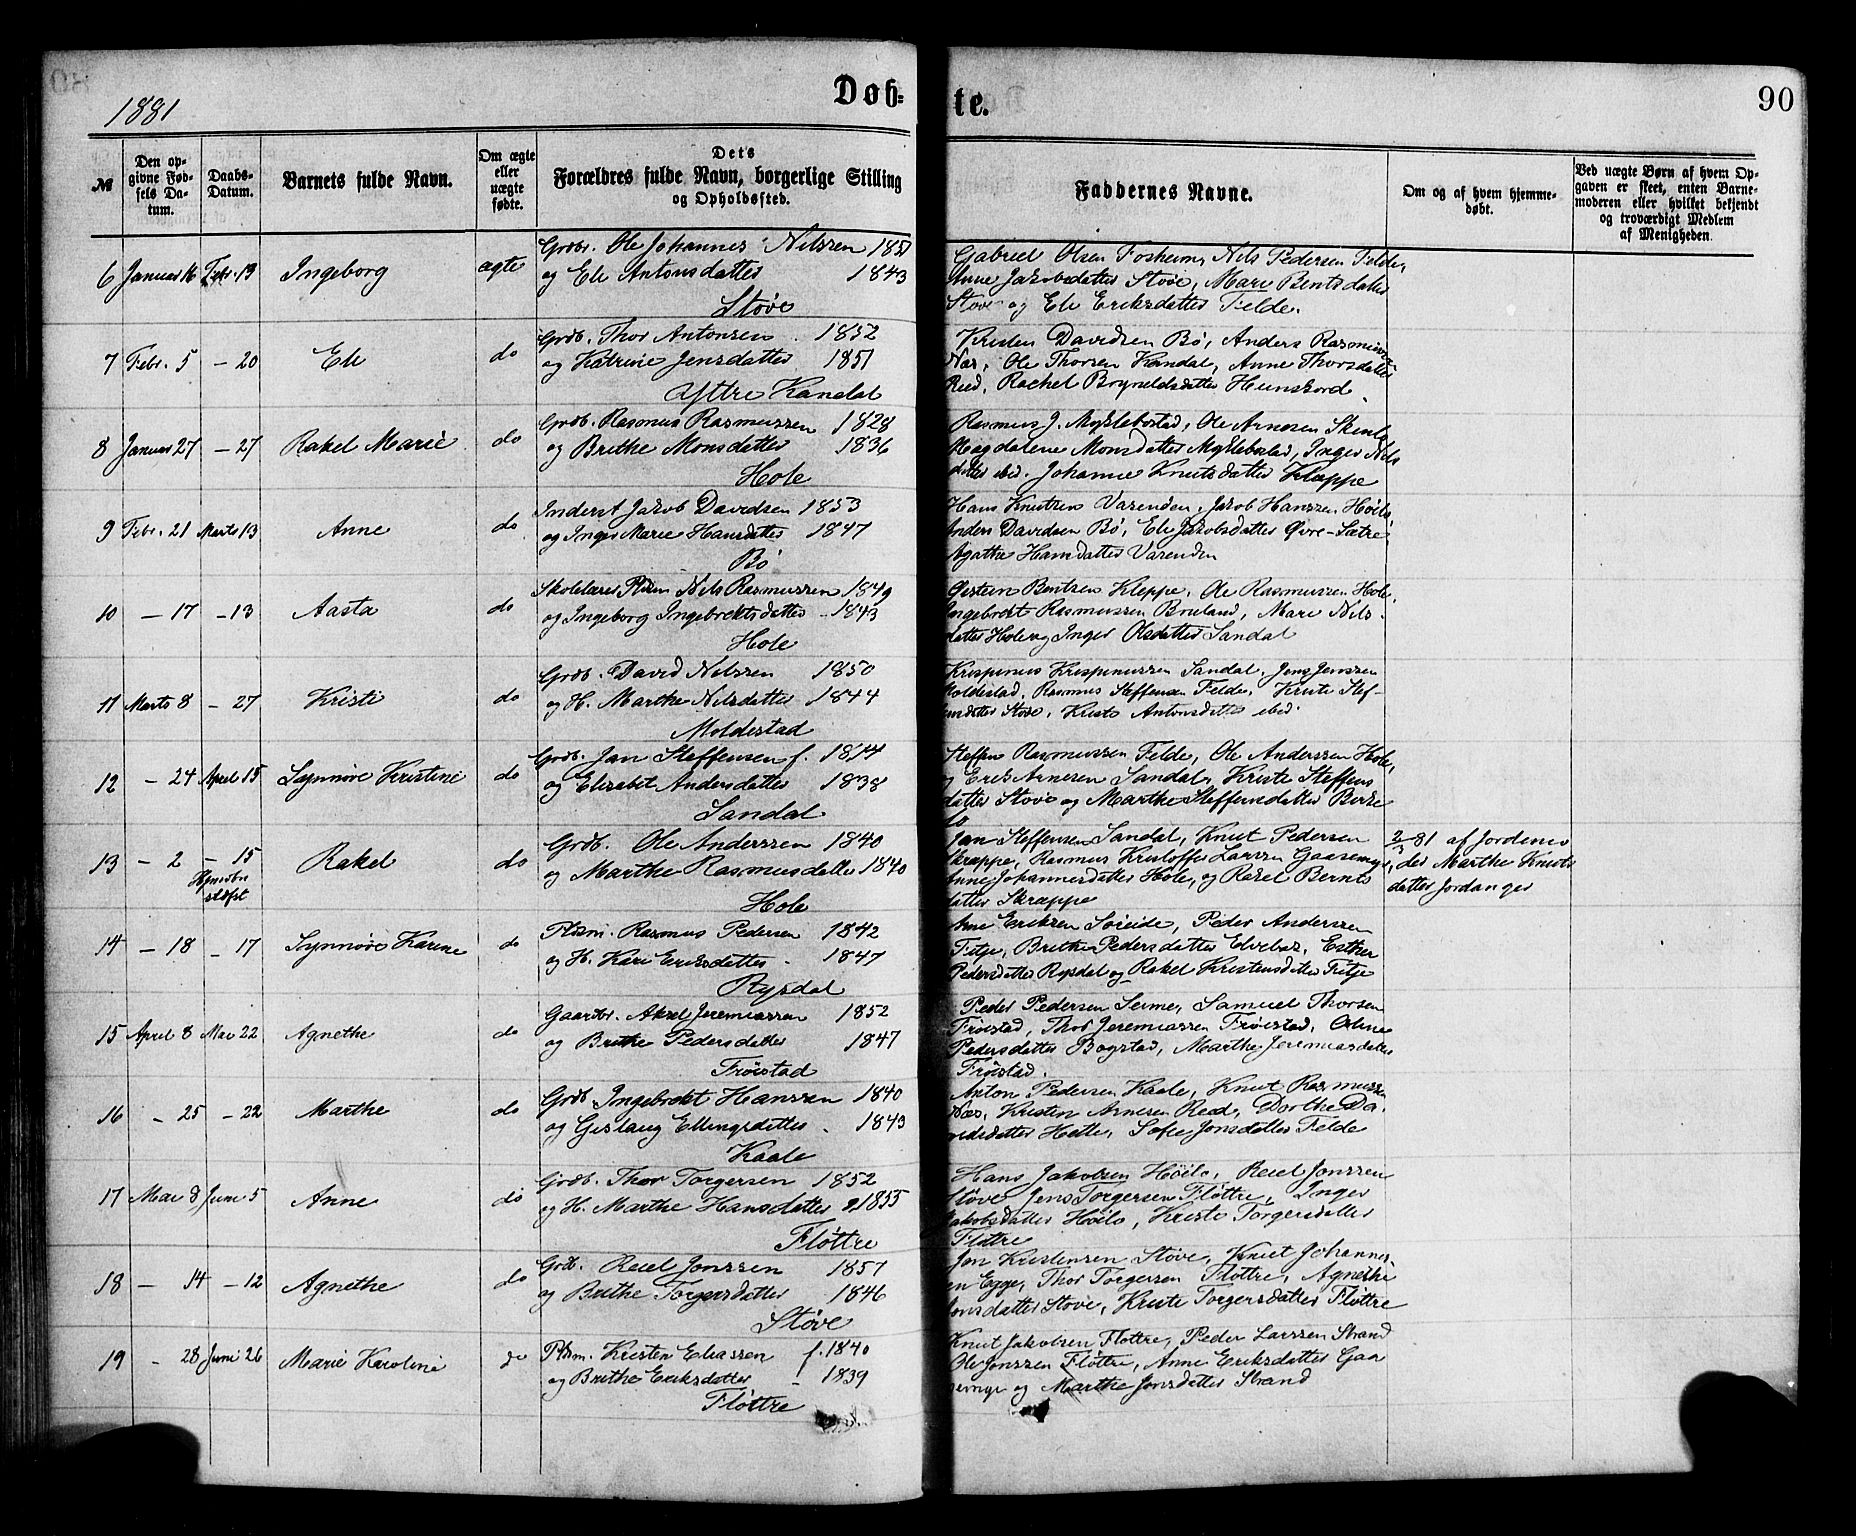 1881
Døb-
te.
90
№
Den op-
givne Fød-
sels Da-
tum.
Daabs-
Datum.
Barnets fulde Navn.
Om ægte
eller
uægte
fødte.
Dets
Forældres fulde Navn, borgerlige Stilling
og Opholdssted.
Faddernes Navne.
Om og af hvem hjemme-
døbt.
Ved uægte Børn af hvem Op-
gaven er skeet, enten Barne-
moderen eller hvilket bekjendt
og troværdigt Medlem
af Menigheden.
6 Januar 16 Febr. 19 Ingeborg ægte Grdbr. Ole Johannes Nilssen 1851
og Eli Antonsdatter 1843
Støve
Gabriel Olsen Fosheim, Nils Pedersen Felde,
Anne Jakobsdatter Støve, Mari Bentsdatter
Støve og Eli Eriksdatter Felde.
7 Febr. 5 - 20 Eli do Grdb. Thor Antonsen 1852
og Katrine Jensdatter 1851
Yttre Kandal
Kristen Davidsen Bø, Anders Rasmussen
Næs, Ole Thorsen Kandal, Anne Thorsdatter
Reed, Rachel Brynildsdatter Hunskord.
8 Januar 27 - 27 Rakel Marie do Grdb. Rasmus Rasmussen 1828
og Brithe Monsdatter 1836
Hole
Rasmus J. Myklebostad, Ole Arnesen
Magdalene Monsdatter Myklebostad, Inger Nils
datter ibid. Johanne Knutsdatter Kleppe
9 Febr. 21 Marts 13 Anne do Inderst Jakob Davidsen 1853
og Inger Marie Hansdatter 1847
Bø
Hans Knutsen Varenden, Jakob Hanssen Høilo
Anders Davidsen Bø, Eli Jakobsdatter Øvre-Sætre
Agathe Hansdatter Varenden
10 - 17 - 13 Aasta do Skolelærer Nils Rasmussen 1849
og Ingeborg Ingebrektsdatter - 1843
Hole
Gistein Bentsen Kleppe, Ole Rasmussen Hole,
Ingebrekt Rasmussen Bruland, Mari Nils-
datter Hole og Inger Olsdatter Sandal
11 Marts 8 - 27 Kristi do Grdb. David Nilssen 1850
og H. Marthe Nilsdatter 1844
Moldestad
Krispinus Krispinussen Sandal, Jens Jenssen
Moldestad, Rasmus Steffensen Felde, Kristi Stef-
fensdatter Støve, Kristi Antonsdatter ibid.
12 - 24 April 15 Synnøve Kristine do Grdb. Jan Steffensen f. 1844
og Elisabet Andersdatter 1838
Sandal
Steffen Rasmussen Felde, Ole Anderssen Hole,
Erik Arnesen Sandal, Kristi Steffens
datter Støve og Marthe Steffensdatter Berge
lo
13 - 2 - 15 Rakel do Grdb. Ole Anderssen 1840
og Marthe Rasmusdatter 1840
Hole
Jan Steffensen Sandal, Knut Pedersen
Skrappe, Rasmus Kristoffer Larsen Gaasemyr,
Anne Johannesdatter Hole, og Rakel Bernts
datter Skræppe
2/3 81 af Jordemo
der Marthe Knuts
datter Jordanger
14 - 18 - 17 Synnøve Karine do Plsm. Rasmus Pedersen 1842
og H. Kari Eriksdatter - 1847
Rysdal
Arne Eriksen Søreide, Peder Anderssen
Fitje, Brithe Pedersdatter Elvebak, Esther
Pedersdatter Rysdal og Rakel Kristensdatter Fitje
15 April 8 Mai 22 Agnethe do Gaardbr. Aksel Jeremiassen 1852
og Brithe Pedersdatter 1847
Frøistad
Peder Pedersen Seime, Samuel Thorsen
Frøistad, Thor Jeremiassen Frøistad, Oline
Pedersdatter Bogstad, Marthe Jeremiasdatter
Frøistad.
16 - 25 - 22 Marthe do Grdb. Ingebrekt Hanssen 1840
og Gislaug Ellingsdatter - 1843
Kaale
Anton Pedersen Kaale, Knut Rasmussen
Næs, Kristen Arnesen Reed, Dorthe Da-
vidsdatter Hetle, Sofie Jonsdatter Felde
17 Mai 8 Juni 5 Anne do Grdb. Thor Torgersen 1852
og H. Marthe Hansdatter 1855
Fløttre
Hans Jakobsen Høilo, Reiel Jonssen
Støve, Jens Torgersen Fløttre, Inger
Jakobsdatter Høilo, Kristi Torgersdatter
Fløttre
18 - 14 - 12 Agnethe do Grdb. Reiel Jonssen 1857
og Brithe Torgersdatter 1846
Støve
Jon Kristensen Støve, Knut Johannes-
sen Egge, Thor Torgersen Fløttre, Agnethe
Jonsdatter Støve, Kristi Torgersdatter Fløttre
19 - 28 Juni 26 Marie Karoline do Plsm. Kristen Eliassen f. 1840
og Brithe Eriksdatter - 1839
Fløttre
Knut Jakobsen Fløttre, Peder Larssen Strand
Ole Jonssen Fløttre, Anne Eriksdatter Gaa
semyr og Marthe Jonsdatter Strand